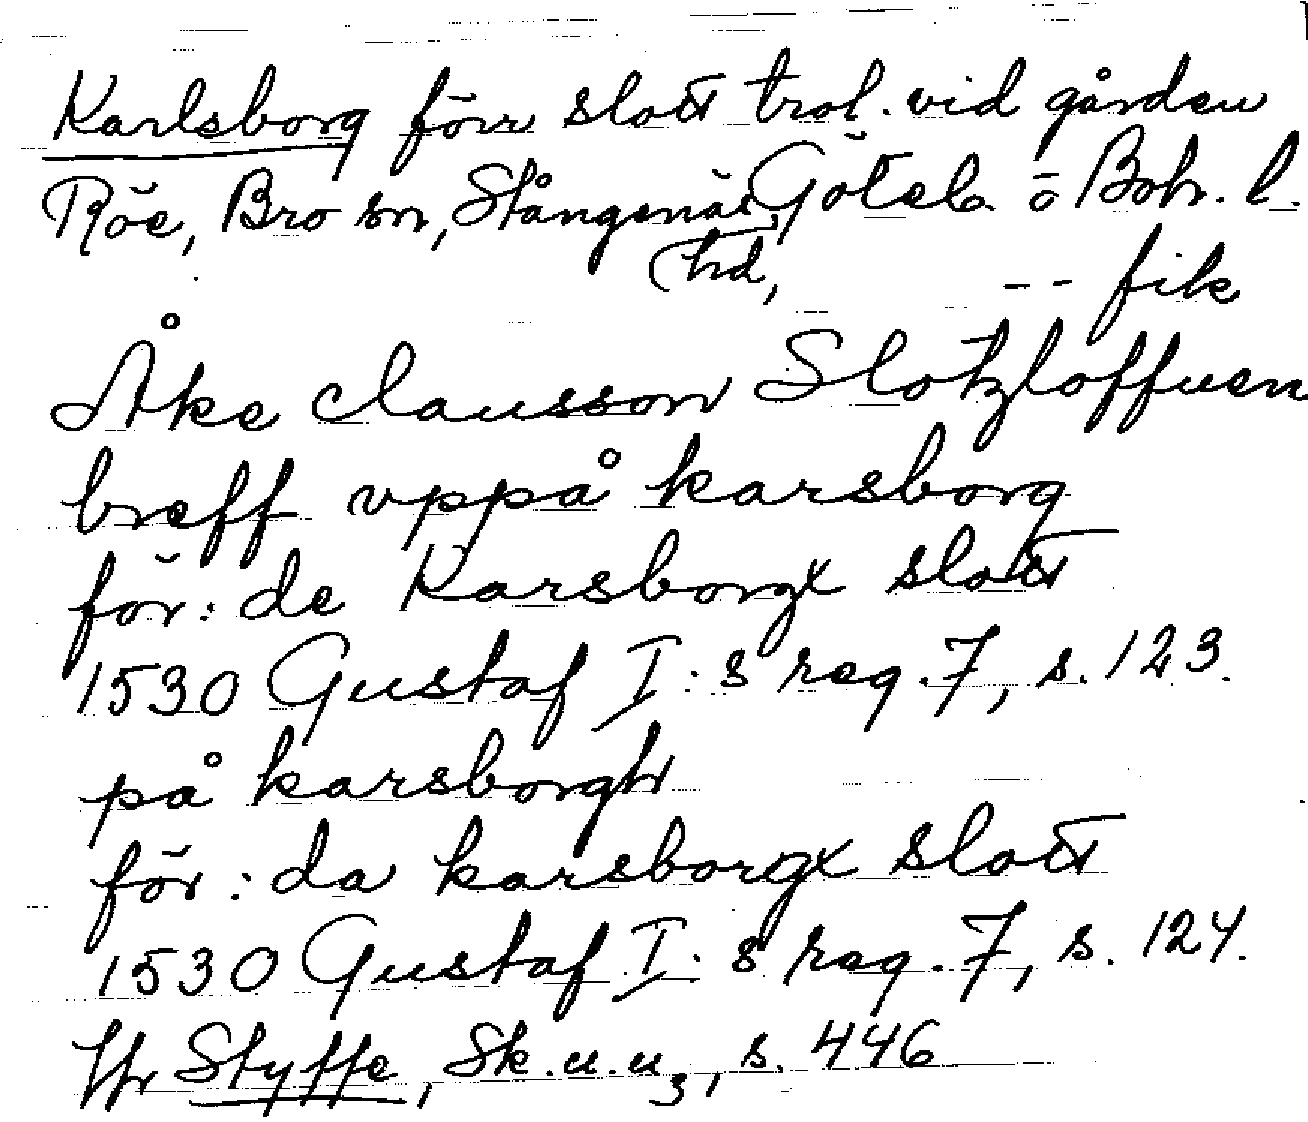 Karlsborg förr slott trol. vid gården
Röe, Bro sn, Stångenäs Göteb. o Boh. l.
(hd,
-- fik
Åke clausson Slotzloffuen
breff vppå karsborg
för: de Karsborgx slott
1530 Gustaf I:s reg. 7, s. 123.
på karsborgh
för: da karsborgx slott
1530 Gustaf I:s reg. 7, s. 124.
Jfr Styffe, Sk.u.u3, s. 446